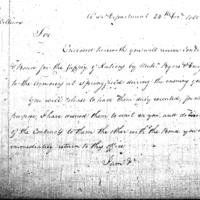 War Department 24th Dec. 1800
Sir
Enclosed herewith you will receive Contract
& Bond for the supply of Rations by Messrs. Byers &
to the Armory at Springfield during the ensuing year
You will please to have them duly executed, for which
purpose, I have ordered them to wait on you, and deliver
of the Contracts to them the other with the Bond you will
immediately return to this office
I am &c